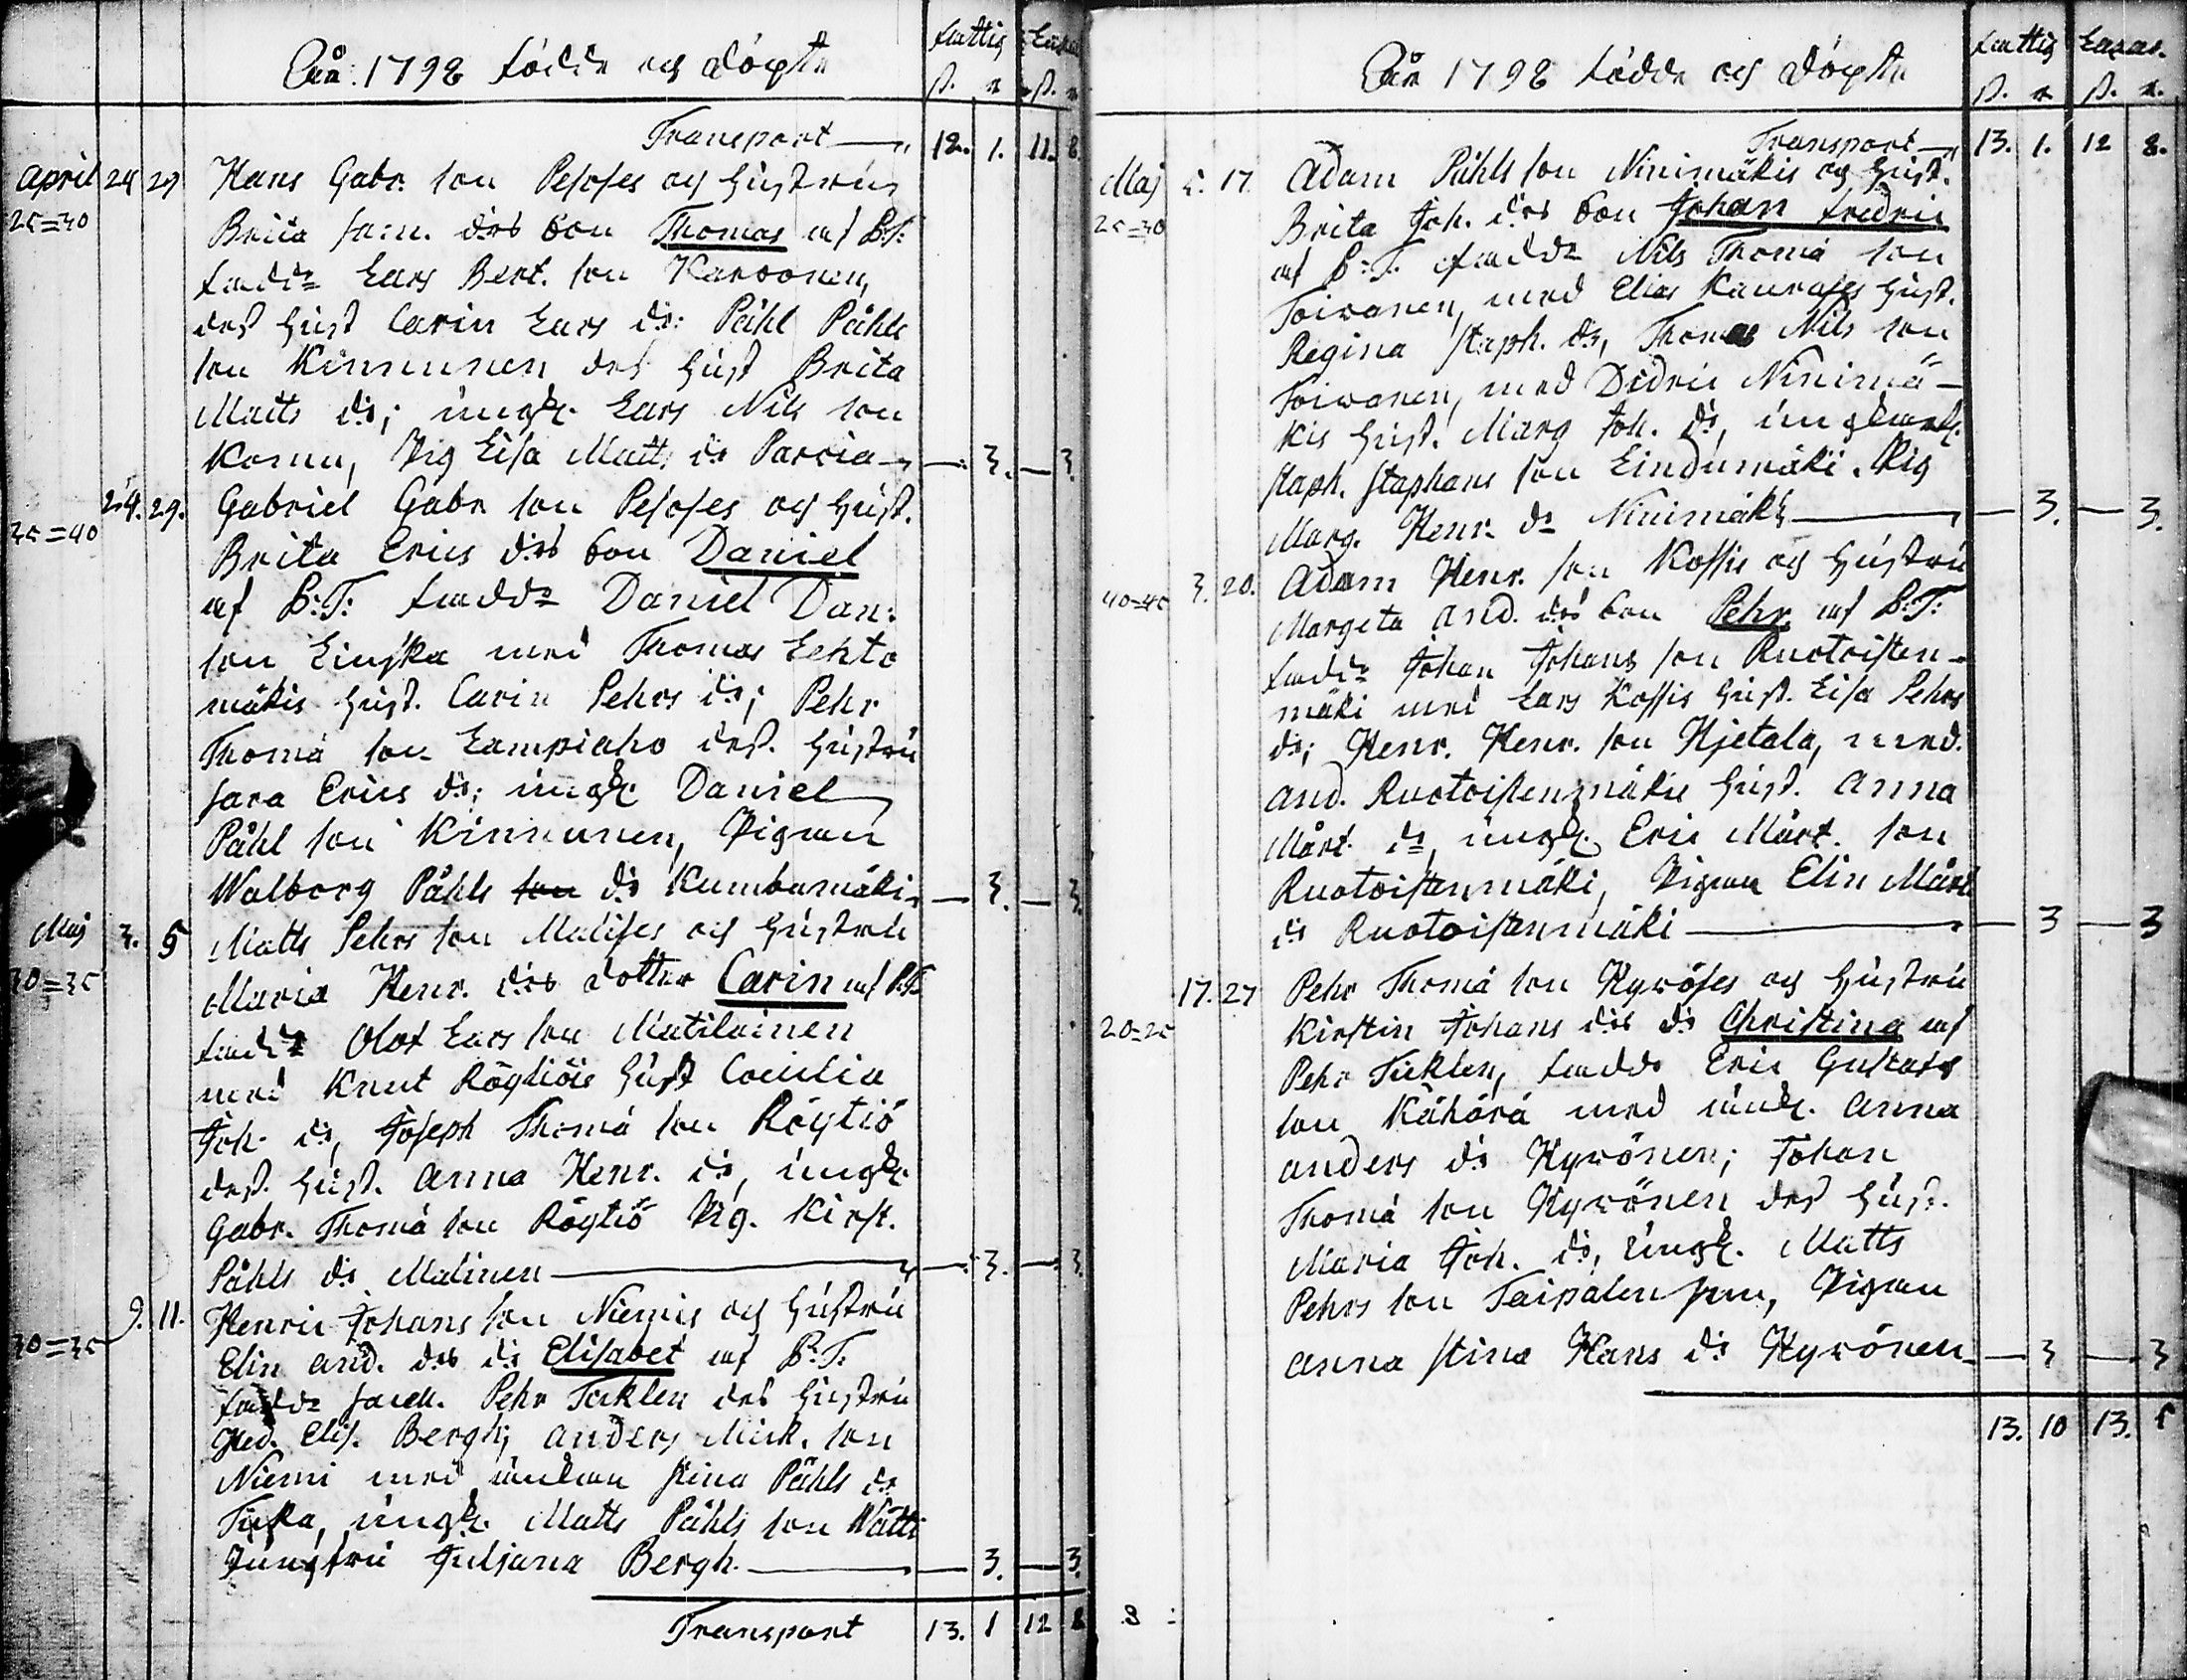 År 1798 födde och döpte
fattig Lazar.
ß. r ß. r
Transport 12. 1. 11. 8.
April 24 29 Hans Gabr. son Pesoses och hustrus
25=30 Brita Sam. drs son Thomas af B.T.
fadd. Lars Bert. son Karvonen,
dess hust Carin Lars dr: Påhl Påhls
son Kinnunen des hust Brita
Matts dr; ungk. Lars Nils son
Komu, Pig Lisa Matts dr Parvia — 3. — 3.
24. 29. Gabriel Gabr son Pesoses och hust.
35=40 Brita Erics drs son Daniel
af B:T: fadd. Daniel Dan:
son Linska med Thomas Lehto
mäkis hust. Carin Pehrs dr; Pehr
Thomä son Lampiaho dess. hustru
Sara Erics dr; ungk Daniel
Påhl son Kinnunen, Pigan
Walborg Påhls son dr Kumbumäki — 3. — 3.
Maj 3. 5 Matts Pehrs son Malises och hustru
30=35 Maria Henr. drs dotter Carin af B.T.
fadd. Olof Lars son Matilainen
med Knut Röytiöis hust Cecilia
Joh. dr, Joseph Thomä son Röytiö
dess. hust. Anna Henr. dr, ungk.
Gabr. Thomä son Röytiö Pig. Kirst.
Påhls dr Malinen — 3. — 3.
9. 11. Henric Johans son Niemis och hustru
30=35 Elin And. drs dr Elisabet af B.T.
fadd. Sacell. Pehr Ticklen des hustru
Hed. Elis. Bergh; Anders Mick. son
Niemi med änkan Stina Påhls dr
Tuska, ungk. Matts Påhls son Wätti
Jungfru Juljana Bergh. — 3. — 3.
Transport 13. 1 12 8
År 1798 födde och döpte
fattig Lazar.
ß. r. ß. r.
Transport 13. 1. 12 8.
Maj 5. 17. Adam Påhls son Ninimäkis och hust.
25=30 Brita Joh. drs son Johan Fredric
af B:T. fadd. Nils Thomä son
Toiwanen, med Elias Kaurases hust.
Regina Staph. dr, Thomas Nils son
Toiwanen, med Didric Ninimä-
kis hust. Marg Joh. dr, ungkarl.
Staph. Staphans son Lindumäki. Pig
Marg. Henr. dr Ninimäki — 3. — 3.
3. 20. Adam Henr. son Kossis och hustru
40=45 Margeta And. drs son Pehr. af B.T:
fadd. Johan Johans son Ruotoisten-
mäki med Lars Kossis hust. Lisa Pehrs
dr; Henr. Henr. son Hjetala, med.
And. Ruotoistenmäkis hust. Anna
Mårt. dr, ungk. Eric Mårt. son
Ruotoistenmäki, Pigan Elin Mårt
dr Ruotoistenmäki — 3 — 3
17. 27 Pehr Thomä son Kyröses och hustru
20=25 Kirstin Johans drs dr Christina af
Pehr Ticklen, fadd. Eric Gustafs
son Kähärä med änk. Anna
Anders dr Kyrönen; Johan
Thomä son Kyrönen des hust.
Maria Joh. dr, ungk. Matts
Pehrs son Taipalen , Pigan
Anna Stina Hans dr Kyrönen — 3 — 3
13. 10 13. 5
8